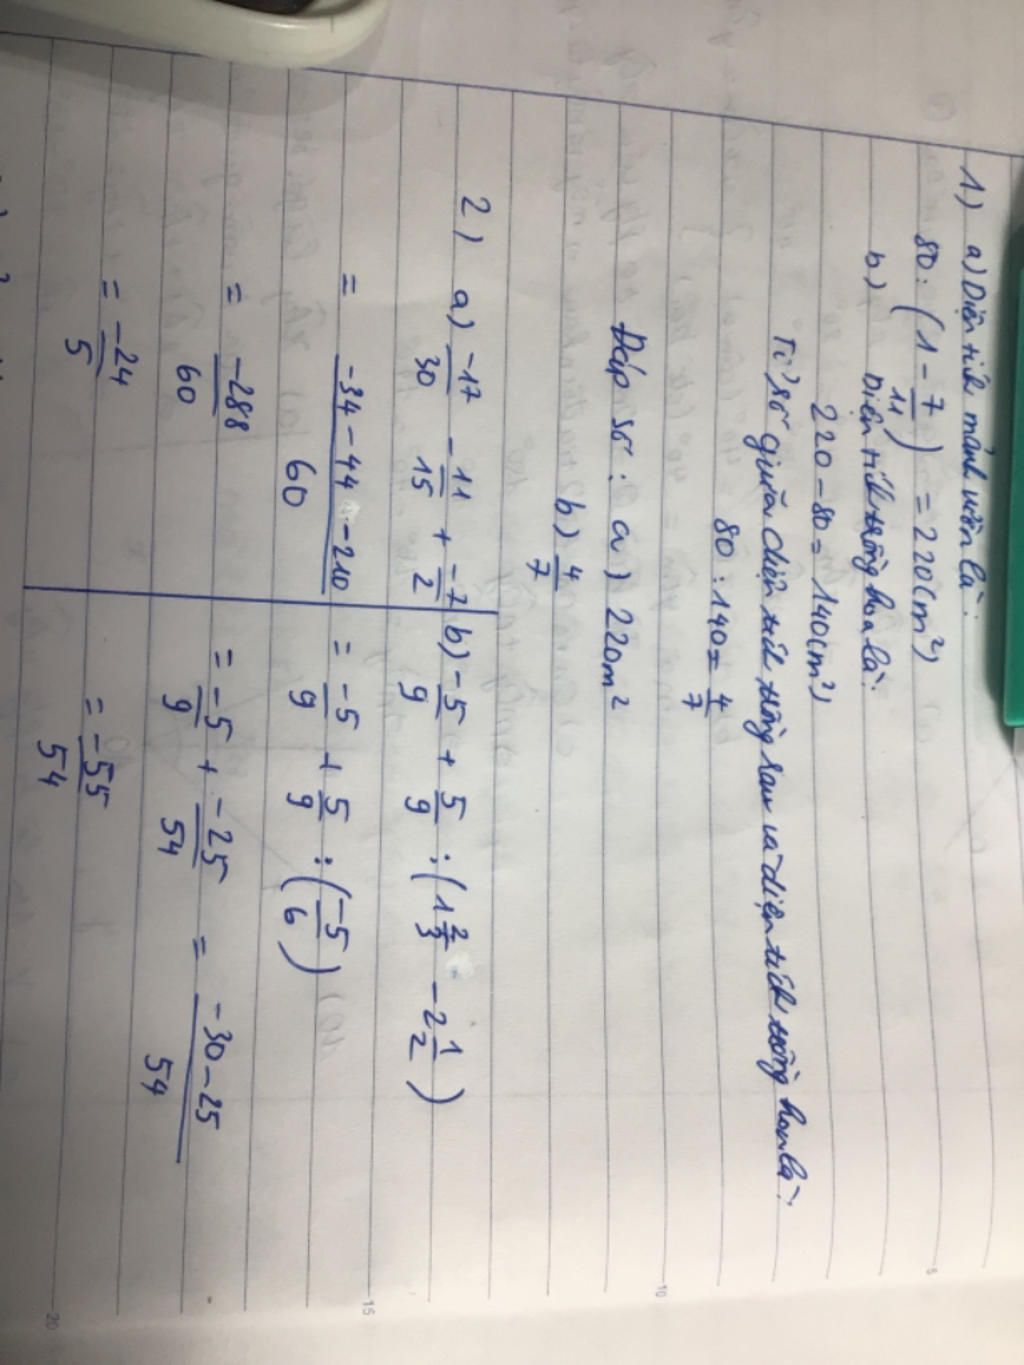 1) a) Diện tích mảnh vườn là:
80 : (1 - 7/11) = 220 (m²)
b) Diện tích trồng hoa là:
220 - 80 = 140 (m²)
Tỉ số giữa diện tích trồng rau và diện tích trồng hoa là:
80 : 140 = 4/7
Đáp số: a) 220m²
b) 4/7
2) a) -17/30 - 11/15 + -7/2
= -34 - 44 - 210/60
= -288/60
= -24/5
b) -5/9 + 5/9 : (1 2/3 - 2 1/2)
= -5/9 + 5/9 : (-5/6)
= -5/9 + -25/54 = -30-25/54
= -55/54
5
10
15
20